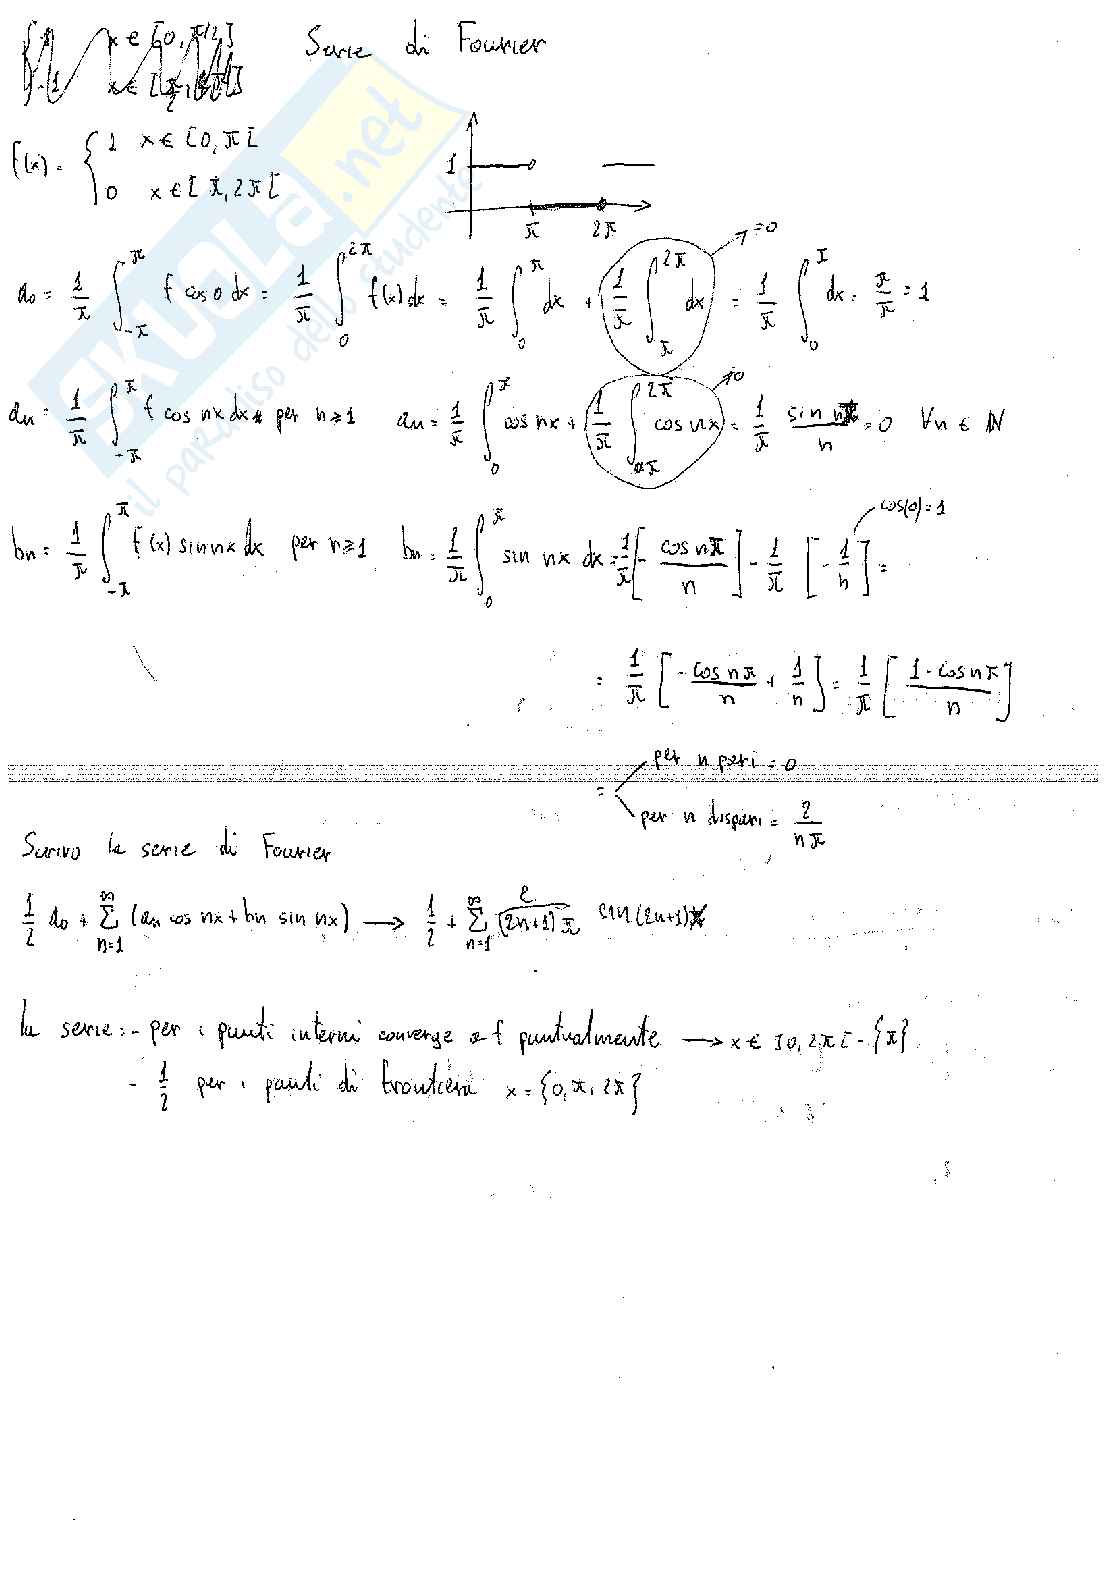 x ∈ [0, π/2] Serie di Fourier
f(x) = { 1 x ∈ [0, π[
0 x ∈ [π, 2π[
1
π 2π
a₀ = 1/π ∫_{-π}^{π} f cos 0 dx = 1/π ∫_0^{2π} f(x) dx = 1/π ∫_0^π dx + 1/π ∫_π^{2π} dx → =0 = 1/π ∫_0^π dx = π/π = 1
aₙ = 1/π ∫_{-π}^{π} f cos nx dx per n ≥ 1 aₙ = 1/π ∫_0^π cos nx + 1/π ∫_π^{2π} cos nx → 0 = 1/π sin nπ/n = 0 ∀n ∈ N
cos(0) = 1
bₙ = 1/π ∫_{-π}^{π} f(x) sin nx dx per n ≥ 1 bₙ = 1/π ∫_0^π sin nx dx = 1/π [- cos nπ/n] - 1/π [- 1/n] =
= 1/π [- cos nπ/n + 1/n] = 1/π [1 - cos nπ/n]
= per n pari = 0
per n dispari = 2/nπ
Scrivo la serie di Fourier
1/2 a₀ + ∑_{n=1}^{∞} (aₙ cos nx + bₙ sin nx) → 1/2 + ∑_{n=1}^{∞} 2/(2n+1)π sin(2n+1)x
la serie: - per i punti interni converge a f puntualmente → x ∈ ]0, 2π[ - {π}
- 1/2 per i punti di frontiera x = {0, π, 2π}
SKUOLA.net
il paradiso dello studente